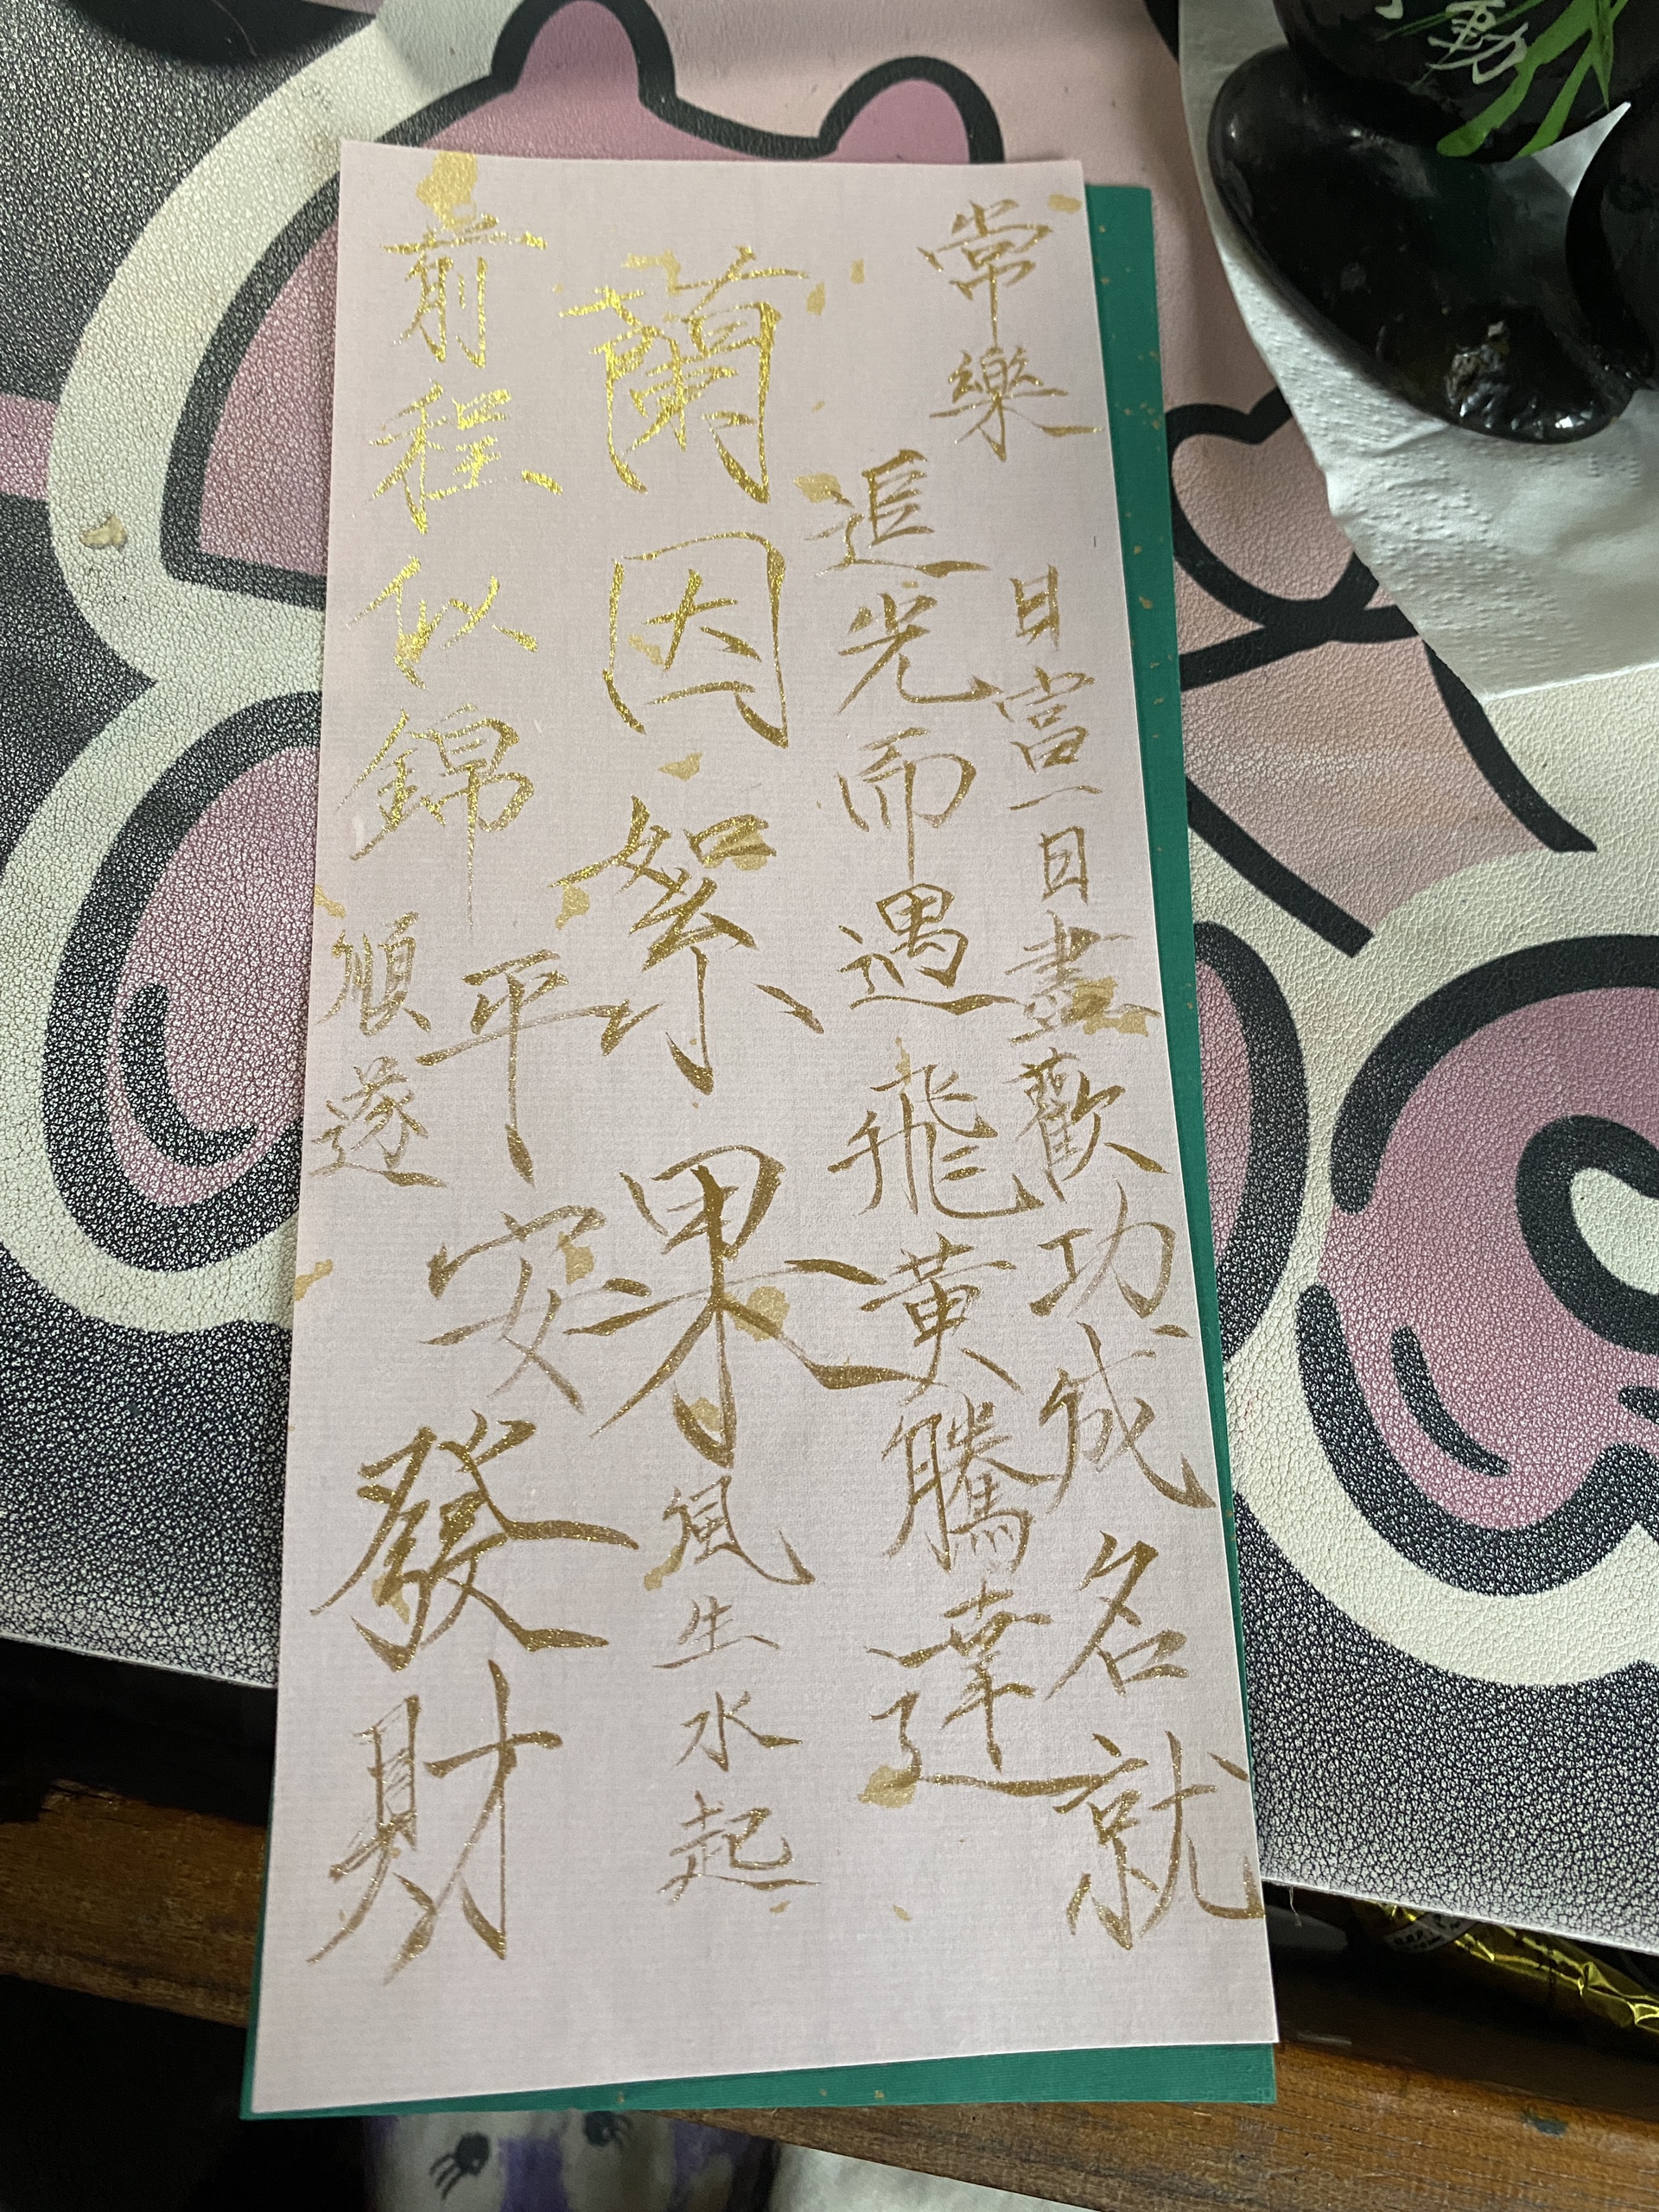 常樂
日富一日盡歡功成名就
追光而遇飛黃騰達
蘭因絮果風生水起
前程似錦平安
順遂發財
動